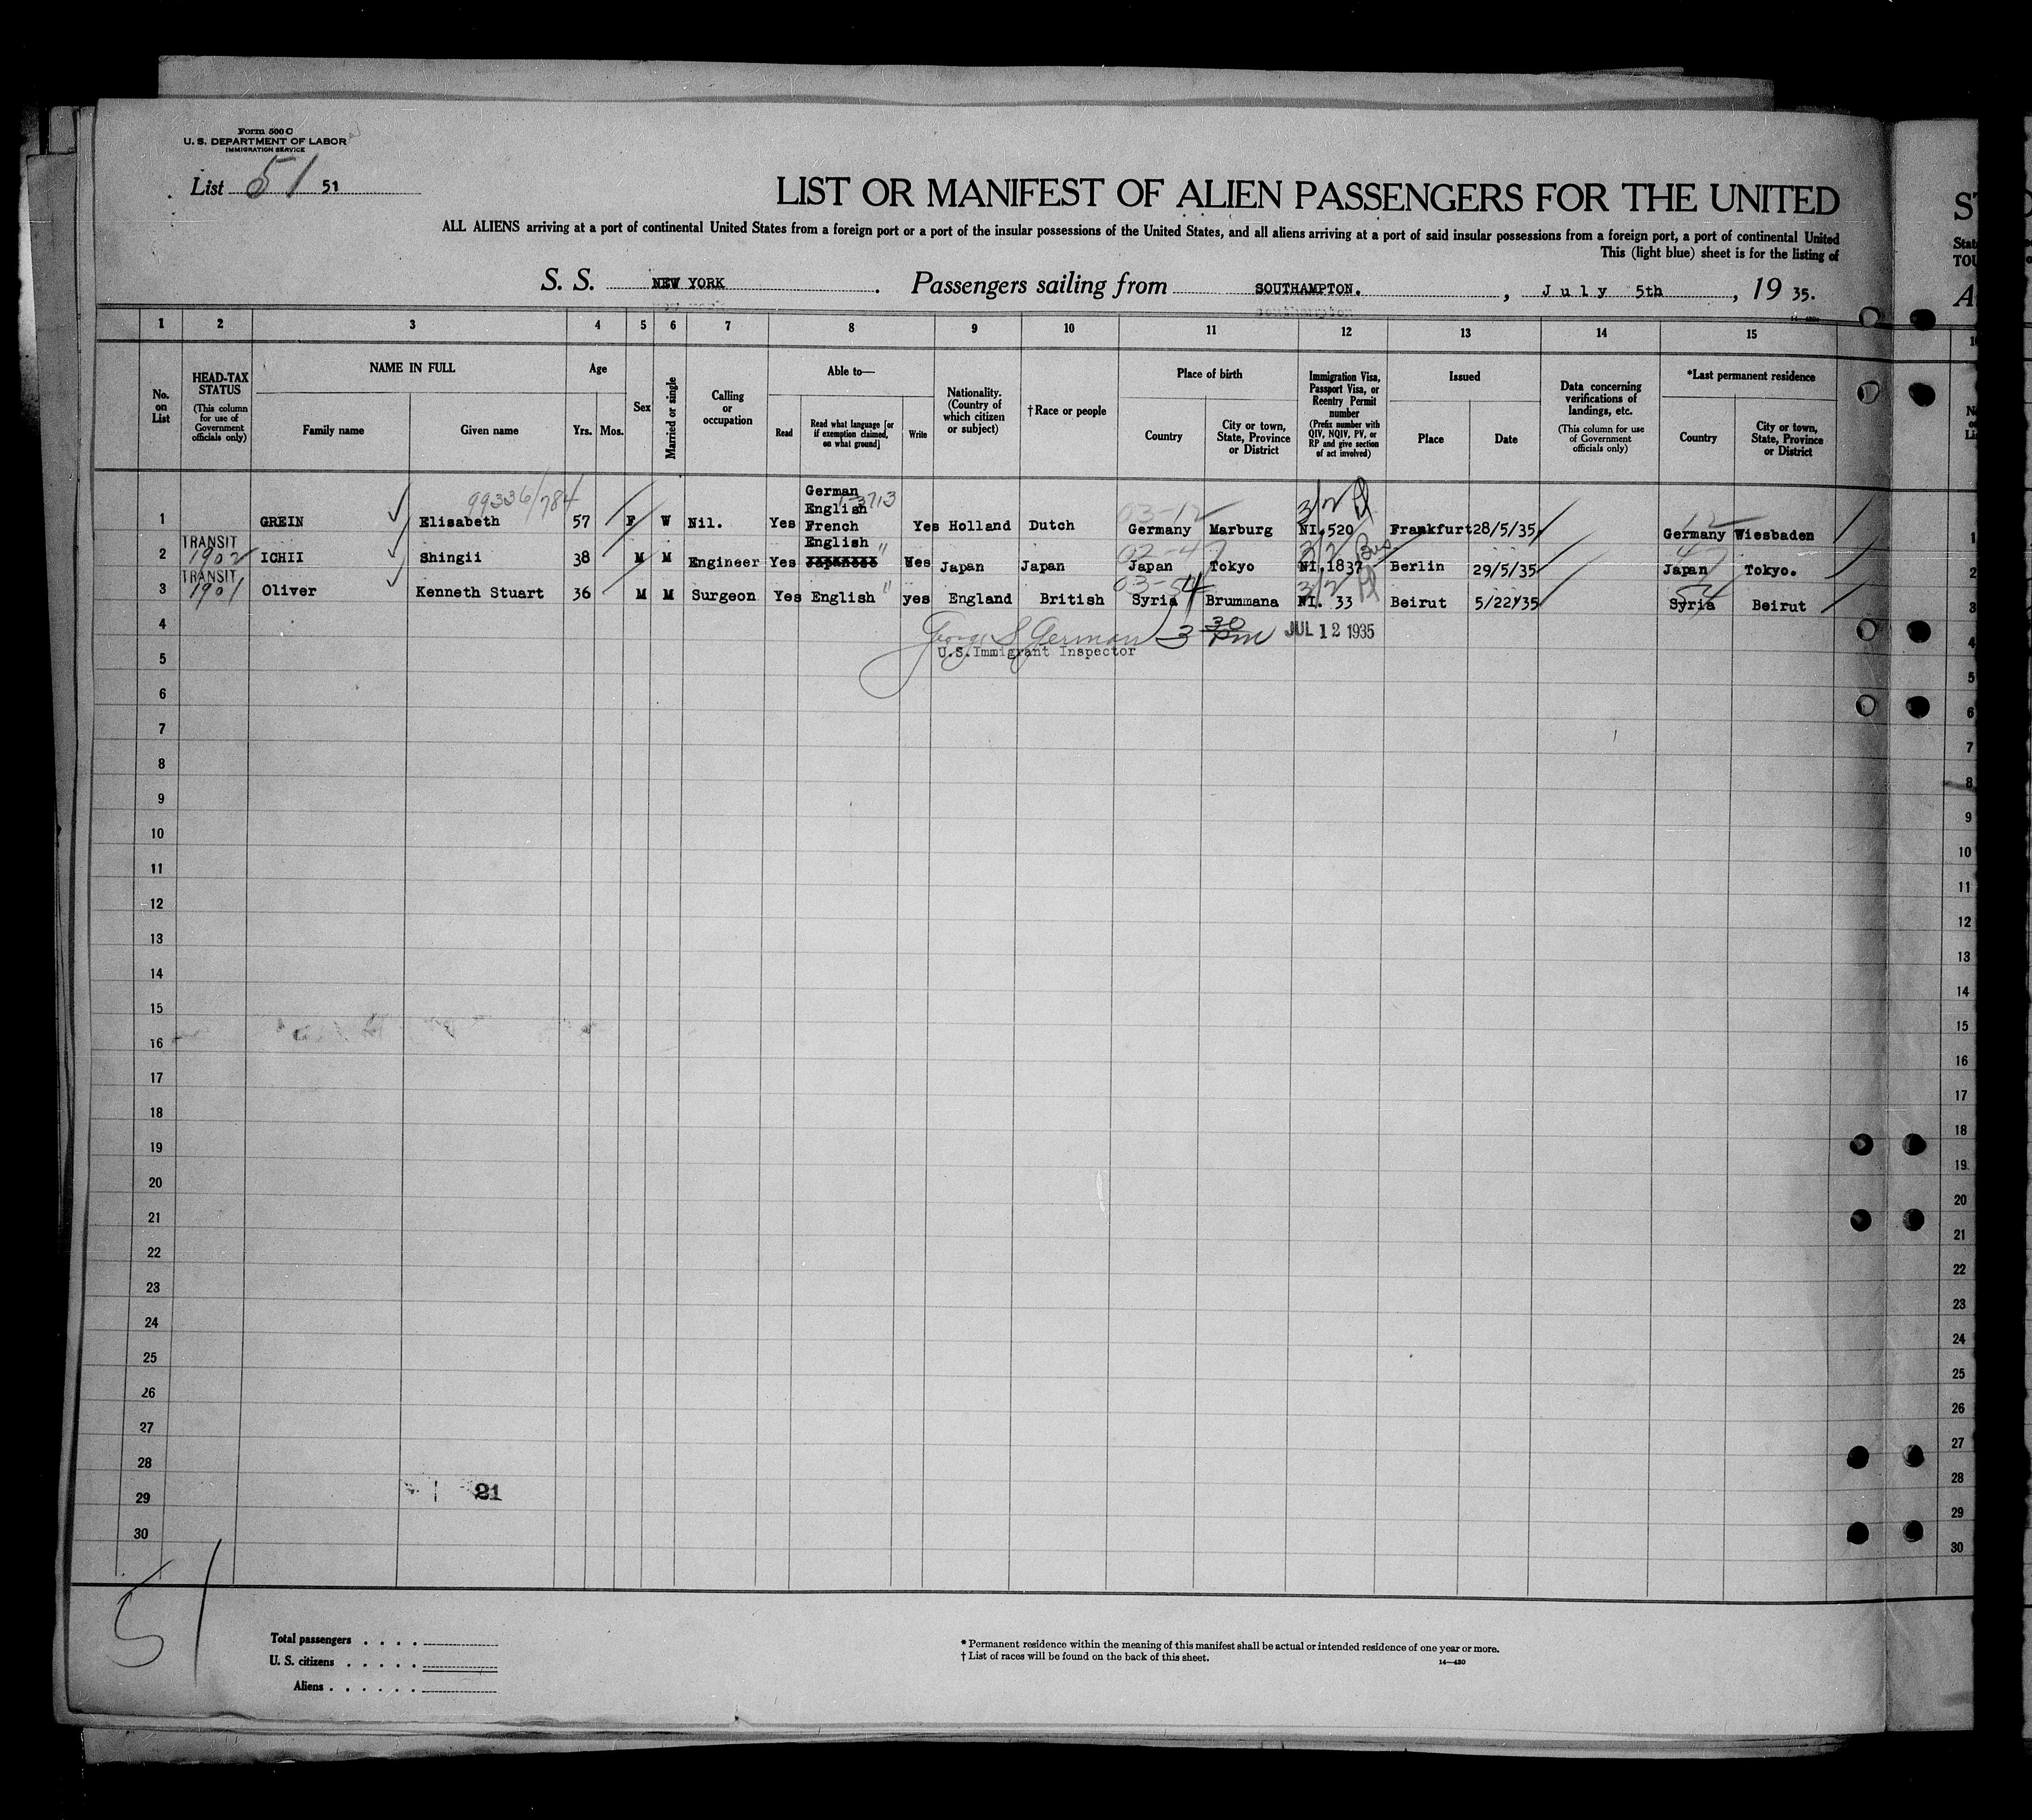 Form 500 C
U. S. DEPARTMENT OF LABOR
IMMIGRATION SERVICE
List 51 51
LIST OR MANIFEST OF ALIEN PASSENGERS FOR THE UNITED
ALL ALIENS arriving at a port of continental United States from a foreign port or a port of the insular possessions of the United States, and all aliens arriving at a port of said insular possessions from a foreign port, a port of continental United
This (light blue) sheet is for the listing of
S. S. NEW YORK Passengers sailing from SOUTHAMPTON. , July 5th , 19 35.
1 2 3 4 5 6 7 8 9 10 11 12 13 14 15
No. on List
HEAD-TAX STATUS
(This column for use of Government officials only)
NAME IN FULL
Family name Given name
Age
Yrs. Mos.
Sex
Married or single
Calling or occupation
Able to—
Read
Read what language [or if exemption claimed, on what ground]
Write
Nationality. (Country of which citizen or subject)
†Race or people
Place of birth
Country
City or town, State, Province or District
Immigration Visa, Passport Visa, or Reentry Permit number
(Prefix number with QIV, NQIV, PV, or RP and give section of act involved)
Issued
Place Date
Data concerning verifications of landings, etc.
(This column for use of Government officials only)
*Last permanent residence
Country
City or town, State, Province or District
99336/784
1 GREIN Elisabeth 57 F W Nil. Yes German English French Yes Holland Dutch Germany Marburg NI,520 Frankfurt 28/5/35 Germany Wiesbaden 1
03-12 3/2 12
TRANSIT
1902
2 ICHII Shingii 38 M M Engineer Yes English Japanese " Yes Japan Japan Japan Tokyo NI.1837 Berlin 29/5/35 Japan Tokyo. 2
02-47 3/2 Bus 47
TRANSIT
1901
3 Oliver Kenneth Stuart 36 M M Surgeon Yes English " yes England British Syria Brummana NI. 33 Beirut 5/22/35 Syria Beirut 3
03-54 3/2 54
George S German 3 30 pm JUL 12 1935
U.S.Immigrant Inspector
4 4
5 5
6 6
7 7
8 8
9 9
10 10
11 11
12 12
13 13
14 14
15 15
16 16
17 17
18 18
19 19
20 20
21 21
22 22
23 23
24 24
25 25
26 26
27 27
28 28
21
29 29
30 30
51
Total passengers . . . .
U. S. citizens . . . . .
Aliens . . . . . .
* Permanent residence within the meaning of this manifest shall be actual or intended residence of one year or more.
† List of races will be found on the back of this sheet.
14—430